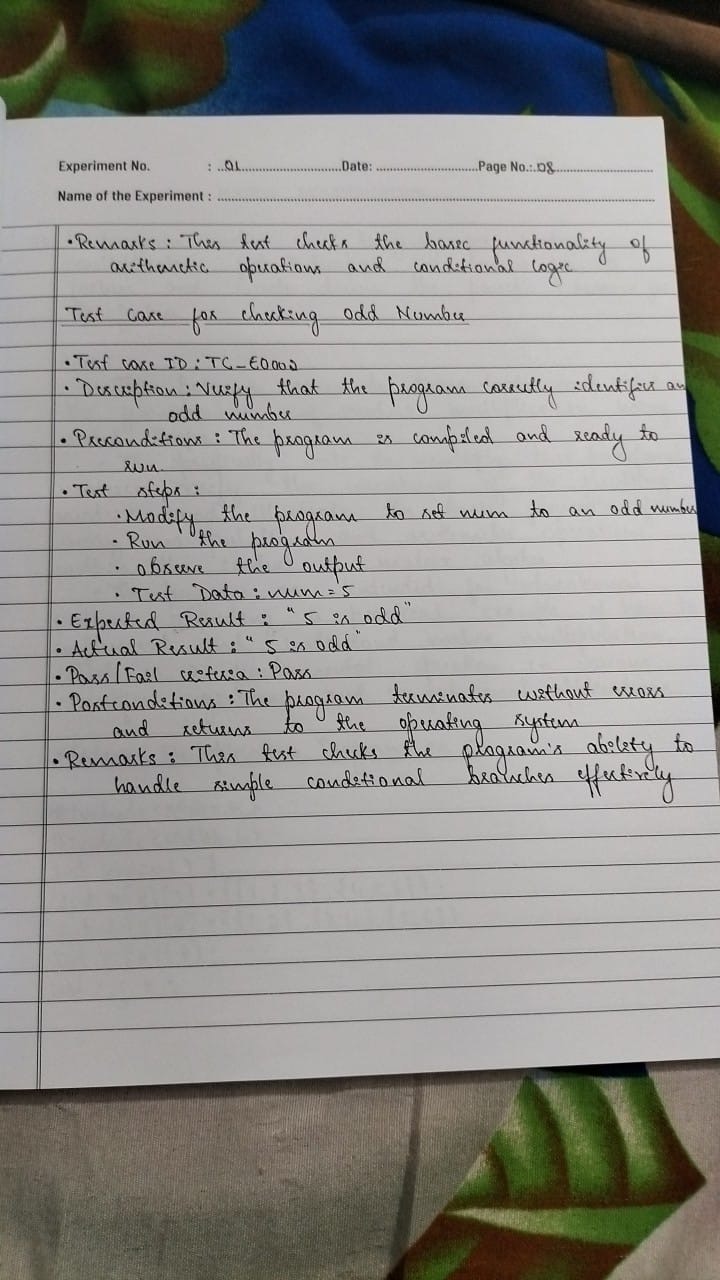 Experiment No. : 01 Date: Page No.: 08
Name of the Experiment :
• Remarks : This test checks the basic functionality of
arithmetic operations and conditional logic
Test case for checking odd Number
• Test case ID : TC_E0002
• Description : Verify that the program correctly identifies an
odd number
• Preconditions : The program is compiled and ready to
run.
• Test steps :
• Modify the program to set num to an odd number
• Run the program
• observe the output
• Test Data : num = 5
• Expected Result : "5 is odd"
• Actual Result : "5 is odd"
• Pass/Fail criteria : Pass
• Postconditions : The program terminates without errors
and returns to the operating system
• Remarks : This test checks the program's ability to
handle simple conditional branches effectively